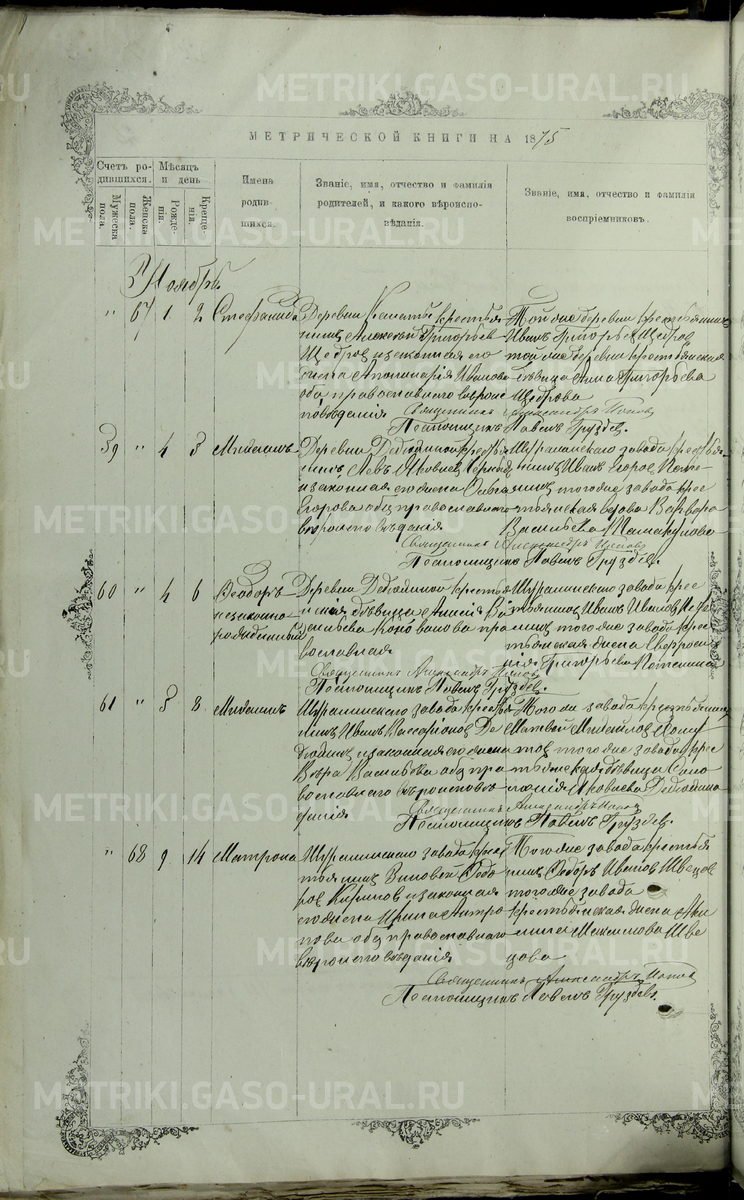 МЕТРИЧЕСКОЙ КНИГИ НА 1875
Счетъ родившихся.
Мужеска пола.
Женска пола.
Мѣсяцъ и день
Рожденія.
Крещенія.
Имена родившихся.
Званіе, имя, отчество и фамилія родителей, и какого вѣроисповѣданія.
Званіе, имя, отчество и фамилія воспріемниковъ.
Ноябрь
" 67 1 2 Стефанида
Деревни крестья
нинъ Алексѣй Григорьевъ
Щедровъ и законная его
жена Апполинарія Иванова
оба православнаго вѣроис
повѣданія
Той же деревни крестьянинъ
Иванъ Григорьевъ Щедровъ
той же деревни крестьянская
дѣвица Анна Григорьева
Щедрова
Священникъ Александръ Поповъ
Псаломщикъ Павелъ Груздевъ.
59 " 4 5 Михаилъ
Деревни крестья
нинъ Левъ Яковлевъ
и законная его жена
Егорова оба православнаго
вѣроисповѣданія
Шуралинскаго завода крестья
нинъ Иванъ Егоровъ
того же завода крес
тьянская вдова Варвара
Васильева
Священникъ Александръ Поповъ
Псаломщикъ Павелъ Груздевъ.
60 " 4 6 Ѳеодоръ
незаконно
рожденный
Деревни крестья
нская дѣвица Ва
сильева пра
вославная
Шуралинскаго завода крес
тьянинъ Иванъ Ивановъ
того же завода крес
тьянская жена
Григорьева Потехина
Священникъ Александръ Поповъ
Псаломщикъ Павелъ Груздевъ.
61 " 5 8 Михаилъ
Шуралинскаго завода крестья
нинъ Иванъ Виссаріоновъ
и законная его жена
Вѣра Васильева оба пра
вославнаго вѣроисповѣ
данія
Того же завода крестьянинъ
Матвей Михайловъ
того же завода крес
тьянская дѣвица
Яковлева
Священникъ Александръ Поповъ
Псаломщикъ Павелъ Груздевъ.
" 68 9 14 Матрона
Шуралинскаго завода крес
тьянинъ Зиновей Ѳедо
ровъ и законная
его жена Ирина Антро
пова оба православнаго
вѣроисповѣданія
Того же завода крестья
нинъ Ѳедоръ Ивановъ Швецовъ
того же завода
крестьянская жена
Максимова Шве
цова
Священникъ Александръ Поповъ
Псаломщикъ Павелъ Груздевъ.
METRIKI.GASO-URAL.RU